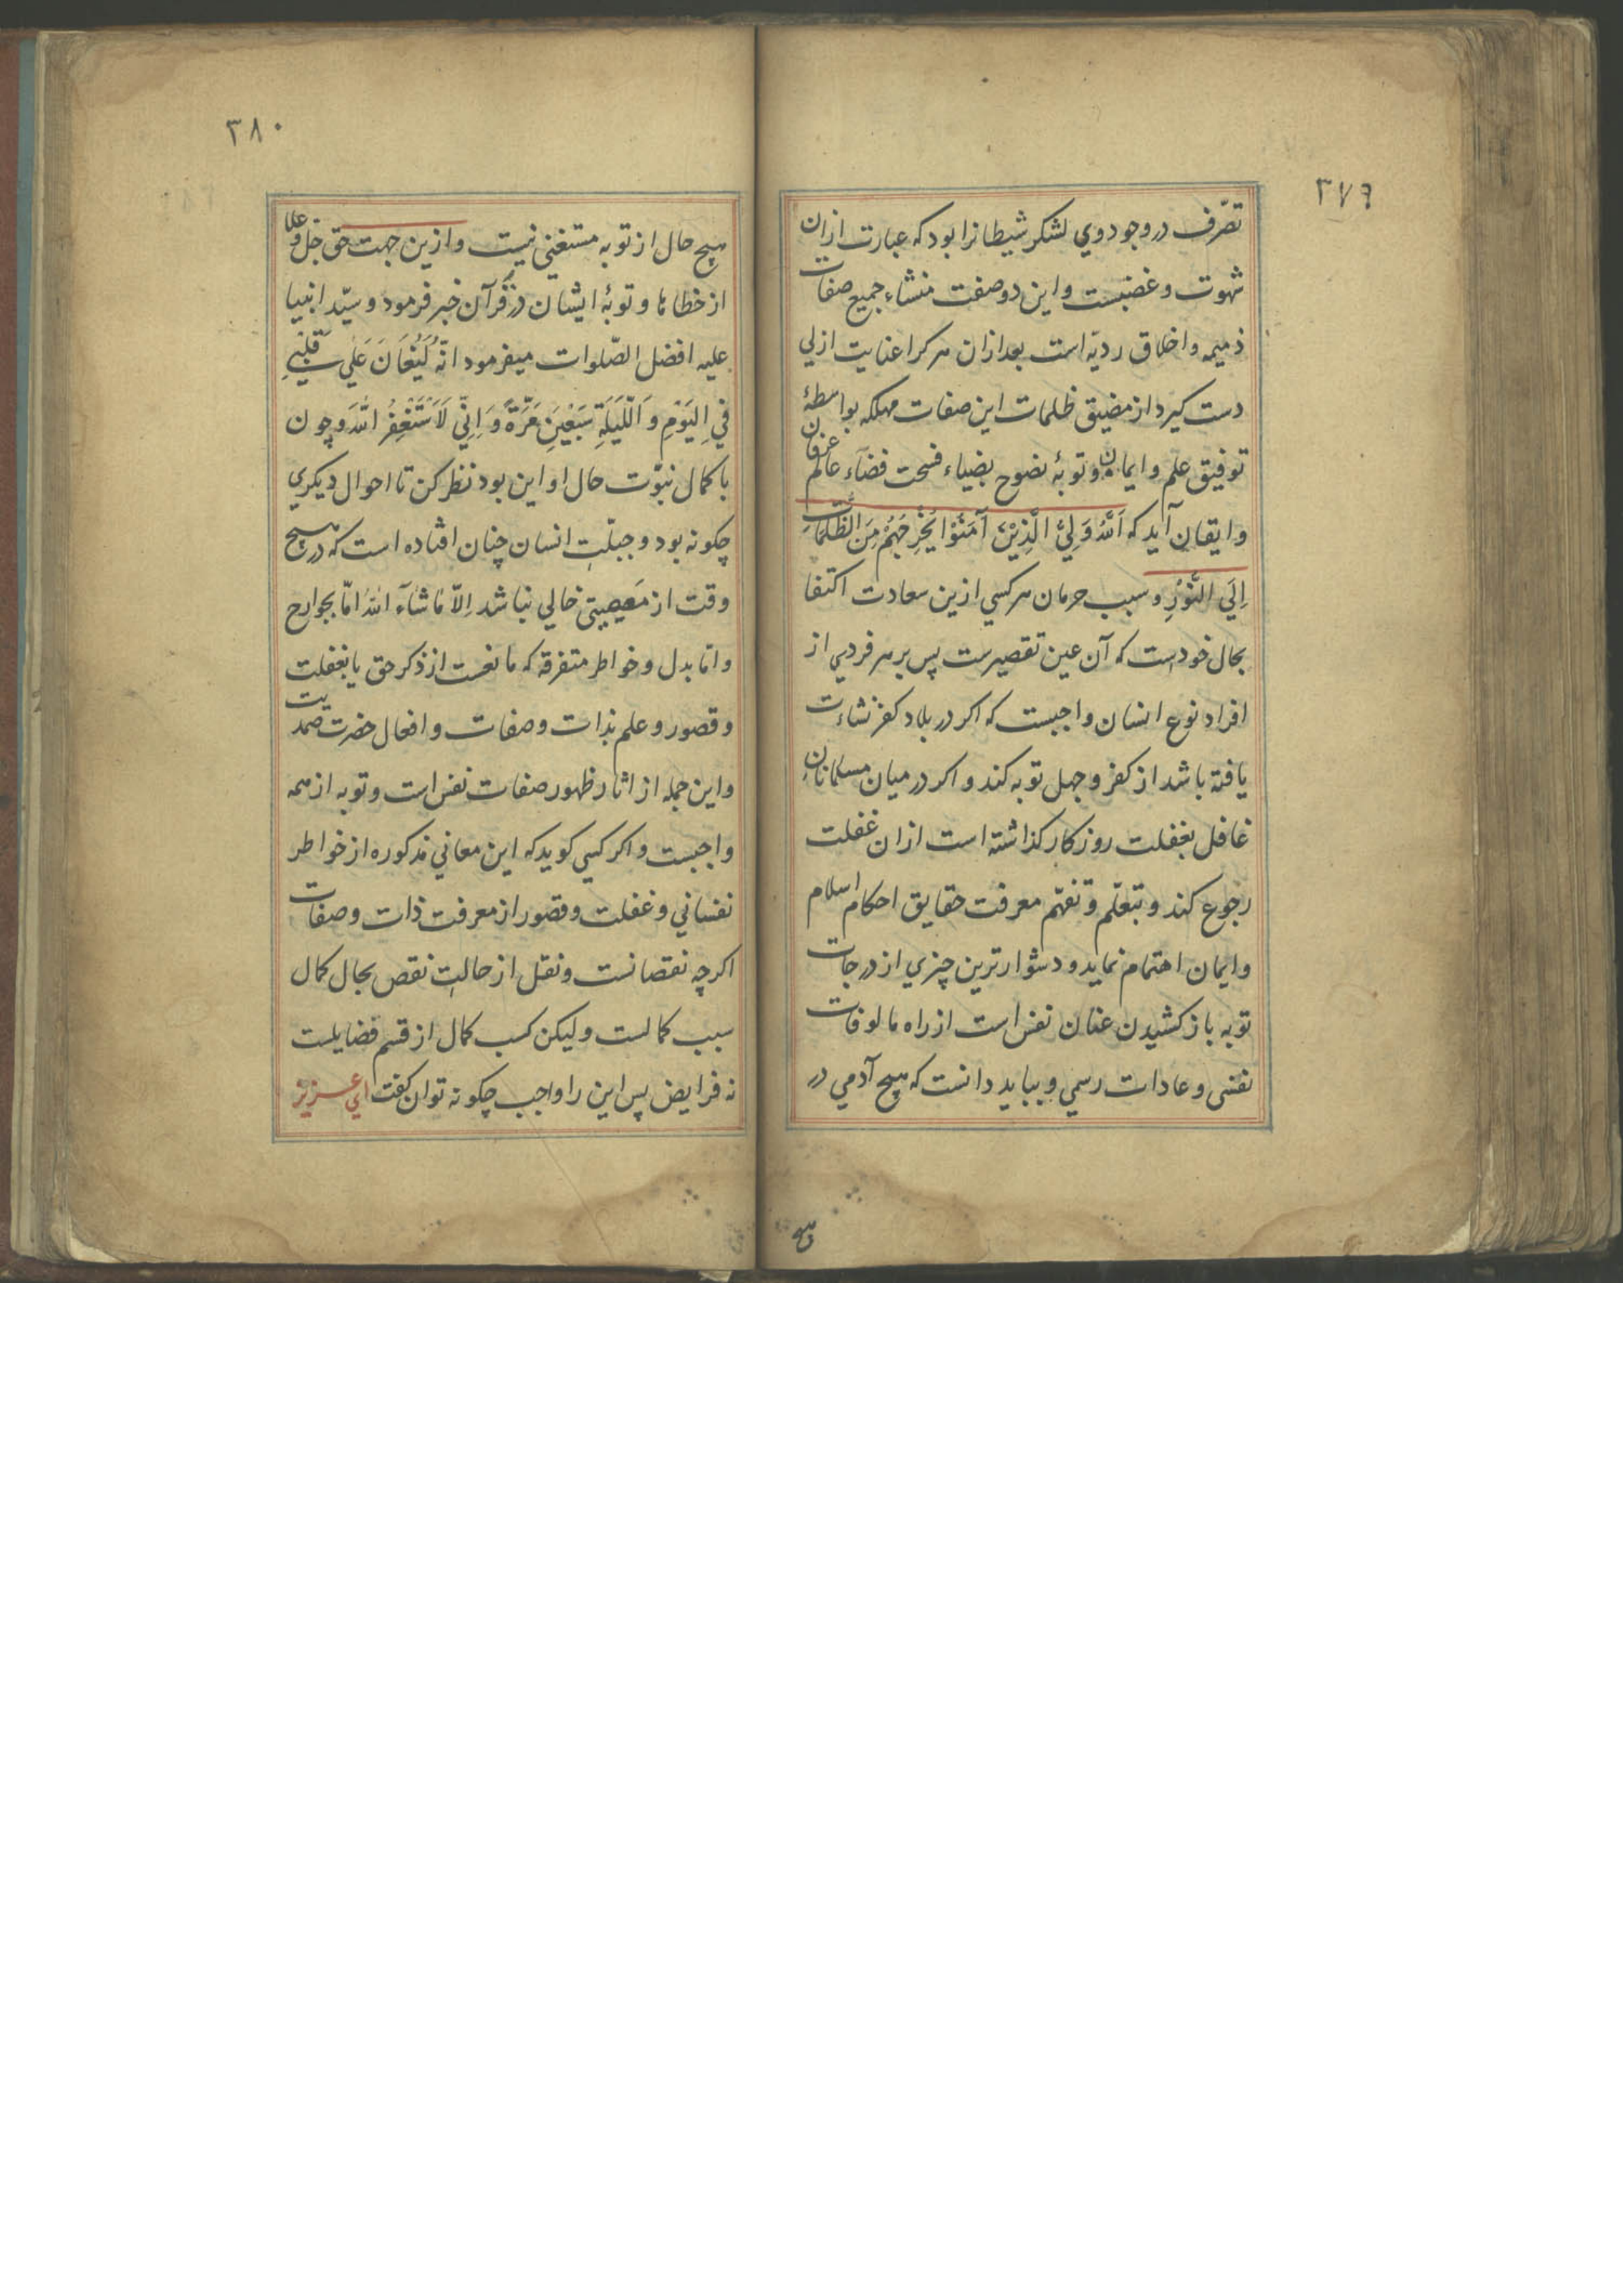 ۳۷۹
تصّرف در وجود وي لشكر شيطانرا بود كه عبارت ازان
شهوت و غضبست و اين دو صفت منشاء جميع صفات
ذميمه و اخلاق رديّه است بعد ازان هر كرا عنايت ازلي
دست كيرد از مضيق ظلمات اين صفات مهلكه بواسطهٔ
توفيق علم و ايمان و توبهٔ نصوح بضياء فسحت فضآء عالم عرفان
و ايقان آيد كه اَللّٰهُ وَلِيُّ الَّذِيْنَ آمَنُوْا يُخْرِجُهُمْ مِنَ الظُّلُمَاتِ
اِلَي النُّوْرِ و سبب حرمان هر كسي ازين سعادت اكتفا
بحال خودست كه آن عين تقصيرست پس بر هر فردي از
افراد نوع انسان واجبست كه اكر در بلاد كفر نشاءت
يافته باشد از كفر و جهل توبه كند و اكر در ميان مسلمانانِ
غافل بغفلت روزكار كذاشته است ازان غفلت
رجوع كند و بتعلّم و تفهّم معرفت حقايق احكام اسلام
و ايمان اهتمام نمايد و دشوارترين چيزي از درجات
توبه باز كشيدن عنان نفس است از راه مالوفات
نفسي و عادات رسمي و ببايد دانست كه هيچ آدمي در
هيچ
۳۸۰
هيچ حال از توبه مستغني نيست و ازين جهت حق جلّ و علا
از خطاها و توبهٔ ايشان در قرآن خبر فرمود و سيّد انبيا
عليه افضل الصّلوات ميفرمود انّهُ لَيُغَانَ عَلٰي قَلْبِيْ
فِي الْيَوْمِ وَ اللَّيْلَةِ سَبْعِيْنَ مَرَّةً وَ اِنِّي لَاَسْتَغْفِرُ اللّٰهَ و چون
با كمال نبوّت حال او اين بود نظر كن تا احوال ديكري
چكونه بود و جبلّتِ انسان چنان افتاده است كه در هيچ
وقت از معصيتي خالي نباشد اِلاّ مَا شَآءَ اللّٰه امّا بجوارح
و امّا بدل و خواطر متفرقه كه مانعست از ذكر حق يا بغفلت
و قصور و علم بذات و صفات و افعال حضرت صمديت
و اين جمله از اثار ظهور صفات نفس است و توبه از همه
واجبست و اكر كسي كويد كه اين معاني مذكوره از خواطر
نفساني و غفلت و قصور از معرفت ذات و صفات
اكرچه نقصانست و نقل از حالتِ نقص بحال كمال
سبب كمالست و ليكن كسب كمال از قسم فضايلست
نه فرايض پس اين را واجب چكونه توان كفت اي عزيز